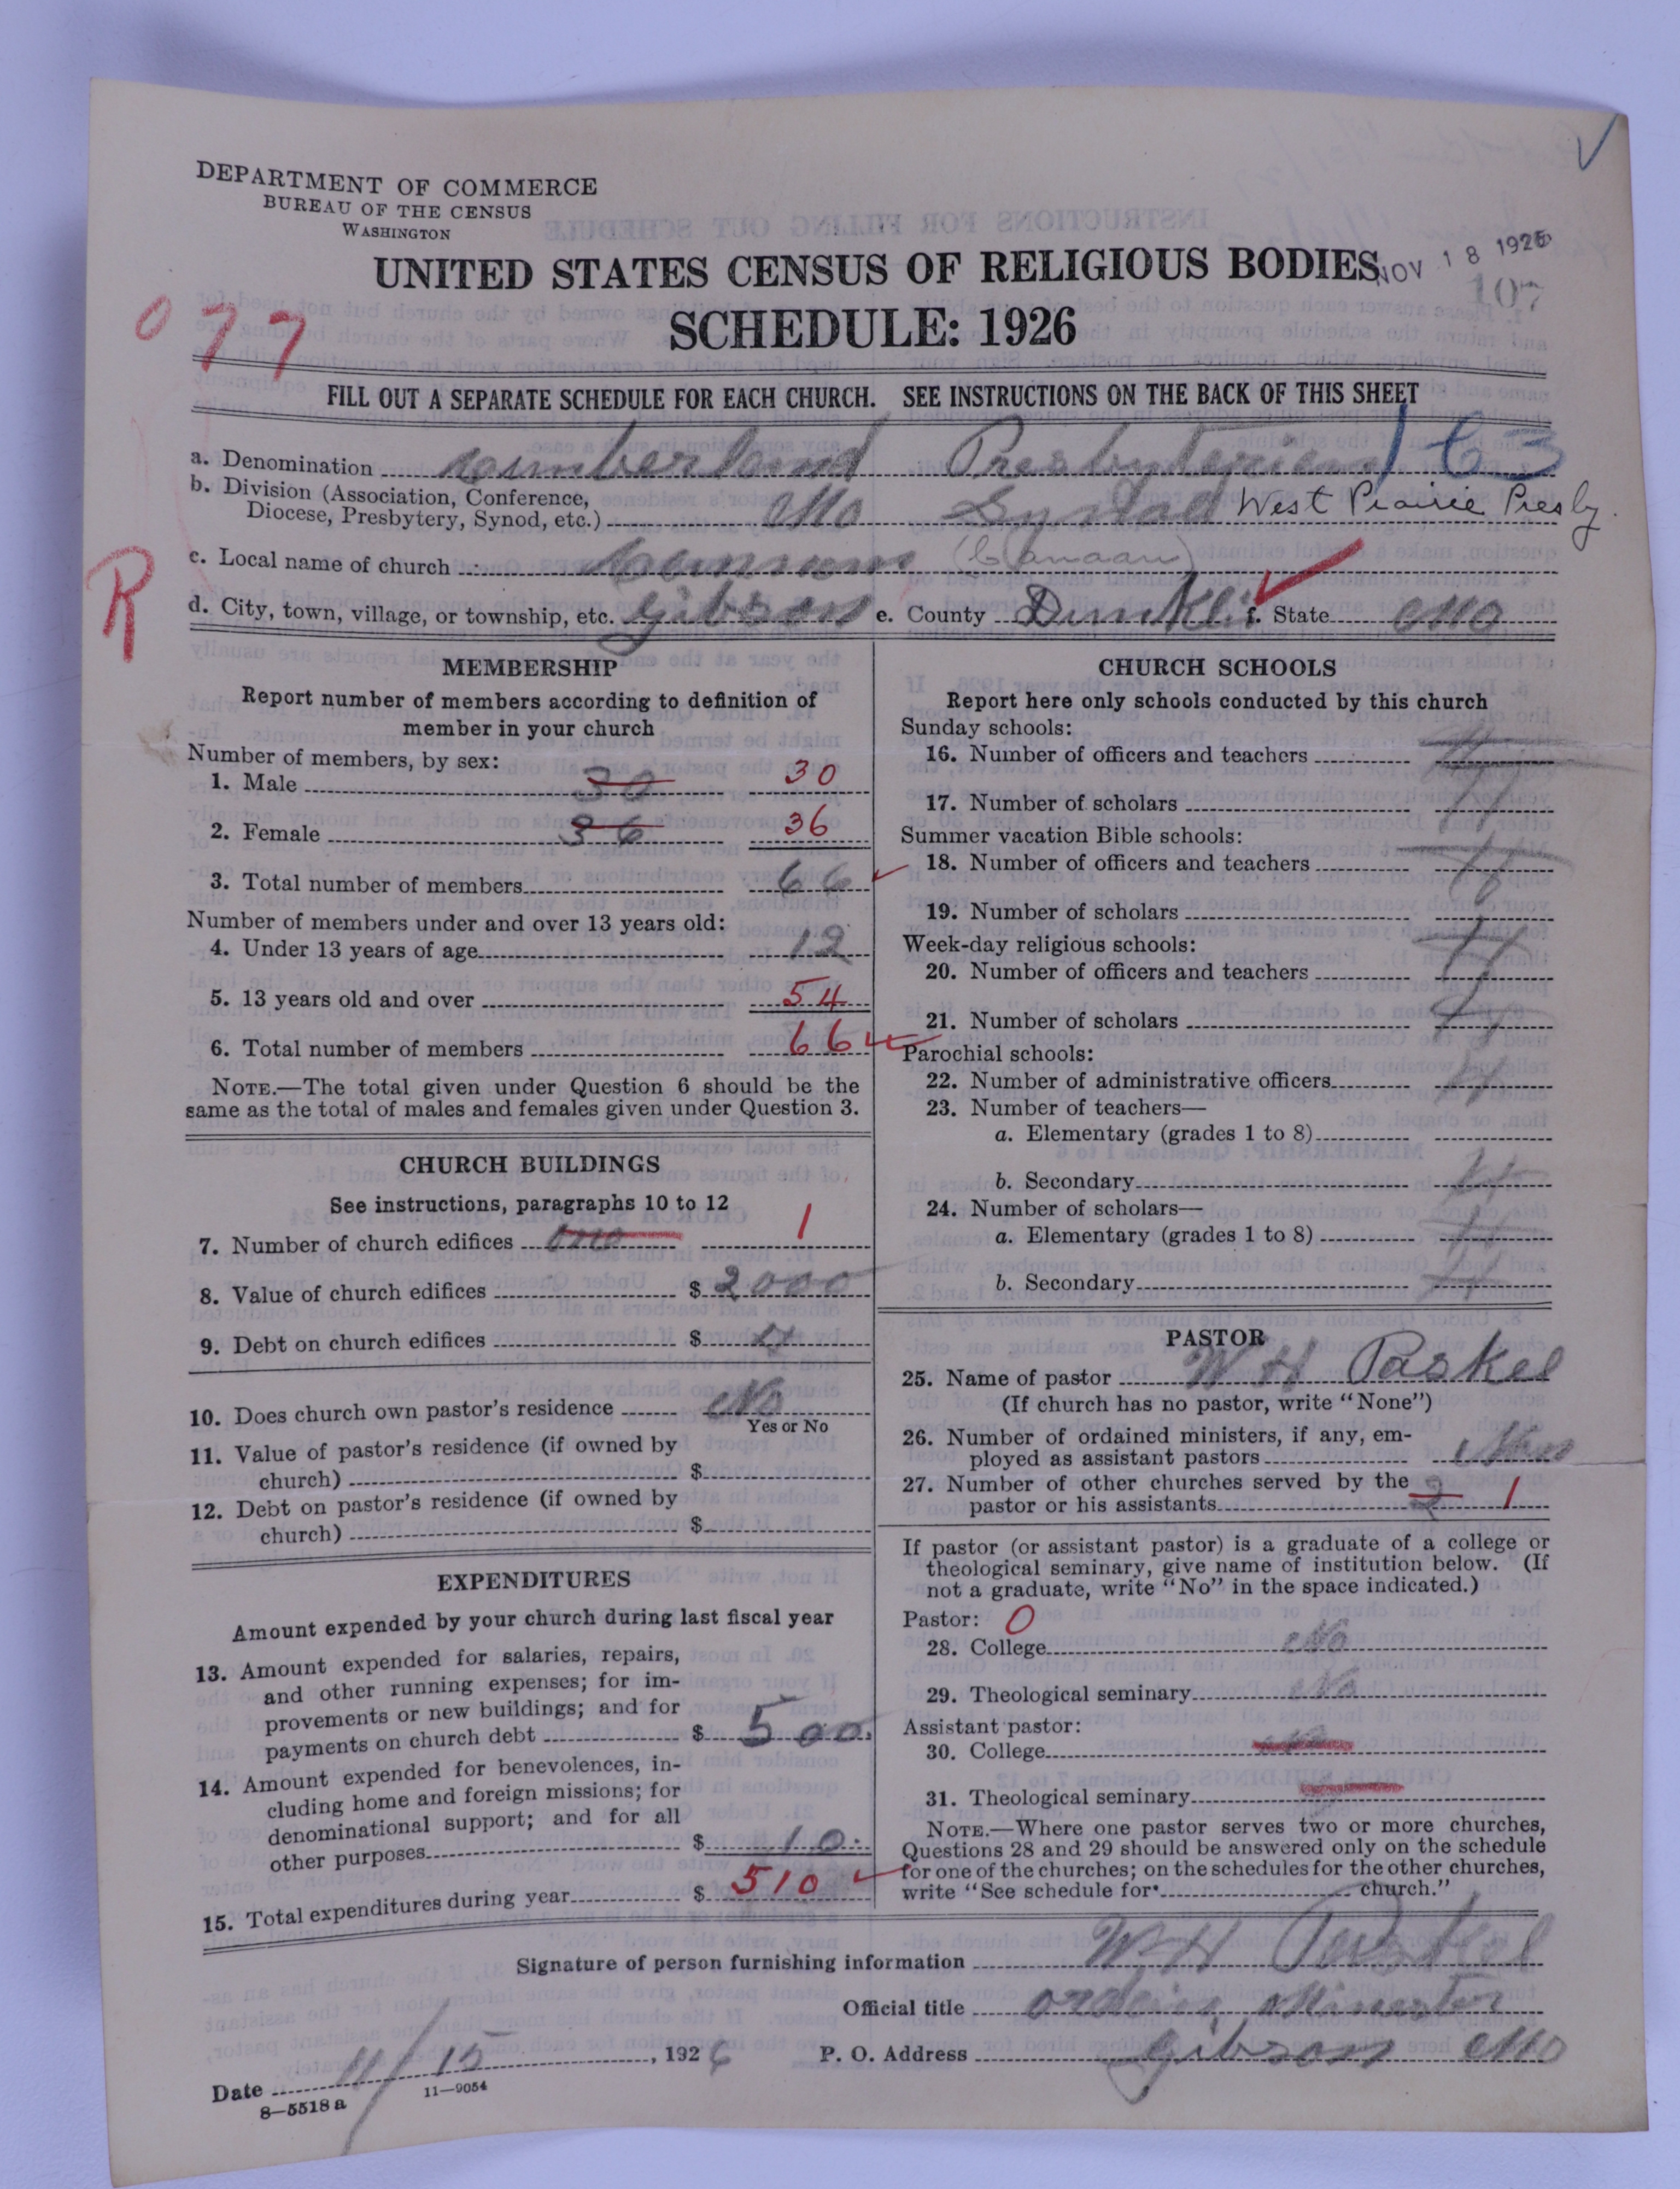 DEPARTMENT OF COMMERCE
BUREAU OF THE CENSUS
WASHINGTON
UNITED STATES CENSUS OF RELIGIOUS BODIES
NOV 18 1926
107
SCHEDULE: 1926
077
FILL OUT A SEPARATE SCHEDULE FOR EACH CHURCH. SEE INSTRUCTIONS ON THE BACK OF THIS SHEET
a. Denomination Cumberland Presbyterian 163
b. Division (Association, Conference,
Diocese, Presbytery, Synod, etc.) Mo West Prairie Presby.
c. Local name of church (Canaan)
R
d. City, town, village, or township, etc. Gibson e. County Dunklin f. State Mo
MEMBERSHIP
Report number of members according to definition of
member in your church
Number of members, by sex:
1. Male 30 30
2. Female 36 36
3. Total number of members 66
Number of members under and over 13 years old:
4. Under 13 years of age 12
5. 13 years old and over 54
6. Total number of members 66
NOTE.—The total given under Question 6 should be the
same as the total of males and females given under Question 3.
CHURCH BUILDINGS
See instructions, paragraphs 10 to 12
7. Number of church edifices one 1
8. Value of church edifices $ 2000
9. Debt on church edifices $
10. Does church own pastor's residence No
Yes or No
11. Value of pastor's residence (if owned by
church) $
12. Debt on pastor's residence (if owned by
church) $
EXPENDITURES
Amount expended by your church during last fiscal year
13. Amount expended for salaries, repairs,
and other running expenses; for im-
provements or new buildings; and for
payments on church debt $ 500.
14. Amount expended for benevolences, in-
cluding home and foreign missions; for
denominational support; and for all
other purposes $ 10.
15. Total expenditures during year $ 510
CHURCH SCHOOLS
Report here only schools conducted by this church
Sunday schools:
16. Number of officers and teachers
17. Number of scholars
Summer vacation Bible schools:
18. Number of officers and teachers
19. Number of scholars
Week-day religious schools:
20. Number of officers and teachers
21. Number of scholars
Parochial schools:
22. Number of administrative officers
23. Number of teachers—
a. Elementary (grades 1 to 8)
b. Secondary
24. Number of scholars—
a. Elementary (grades 1 to 8)
b. Secondary
PASTOR
25. Name of pastor W H Paskel
(If church has no pastor, write "None")
26. Number of ordained ministers, if any, em-
ployed as assistant pastors
27. Number of other churches served by the
pastor or his assistants 2 1
If pastor (or assistant pastor) is a graduate of a college or
theological seminary, give name of institution below. (If
not a graduate, write "No" in the space indicated.)
Pastor: 0
28. College No
29. Theological seminary No
Assistant pastor:
30. College
31. Theological seminary
NOTE.—Where one pastor serves two or more churches,
Questions 28 and 29 should be answered only on the schedule
for one of the churches; on the schedules for the other churches,
write "See schedule for church."
Signature of person furnishing information W H Paskel
Official title
Date 11/15, 1926 P. O. Address Gibson Mo
8—5518a 11—9054